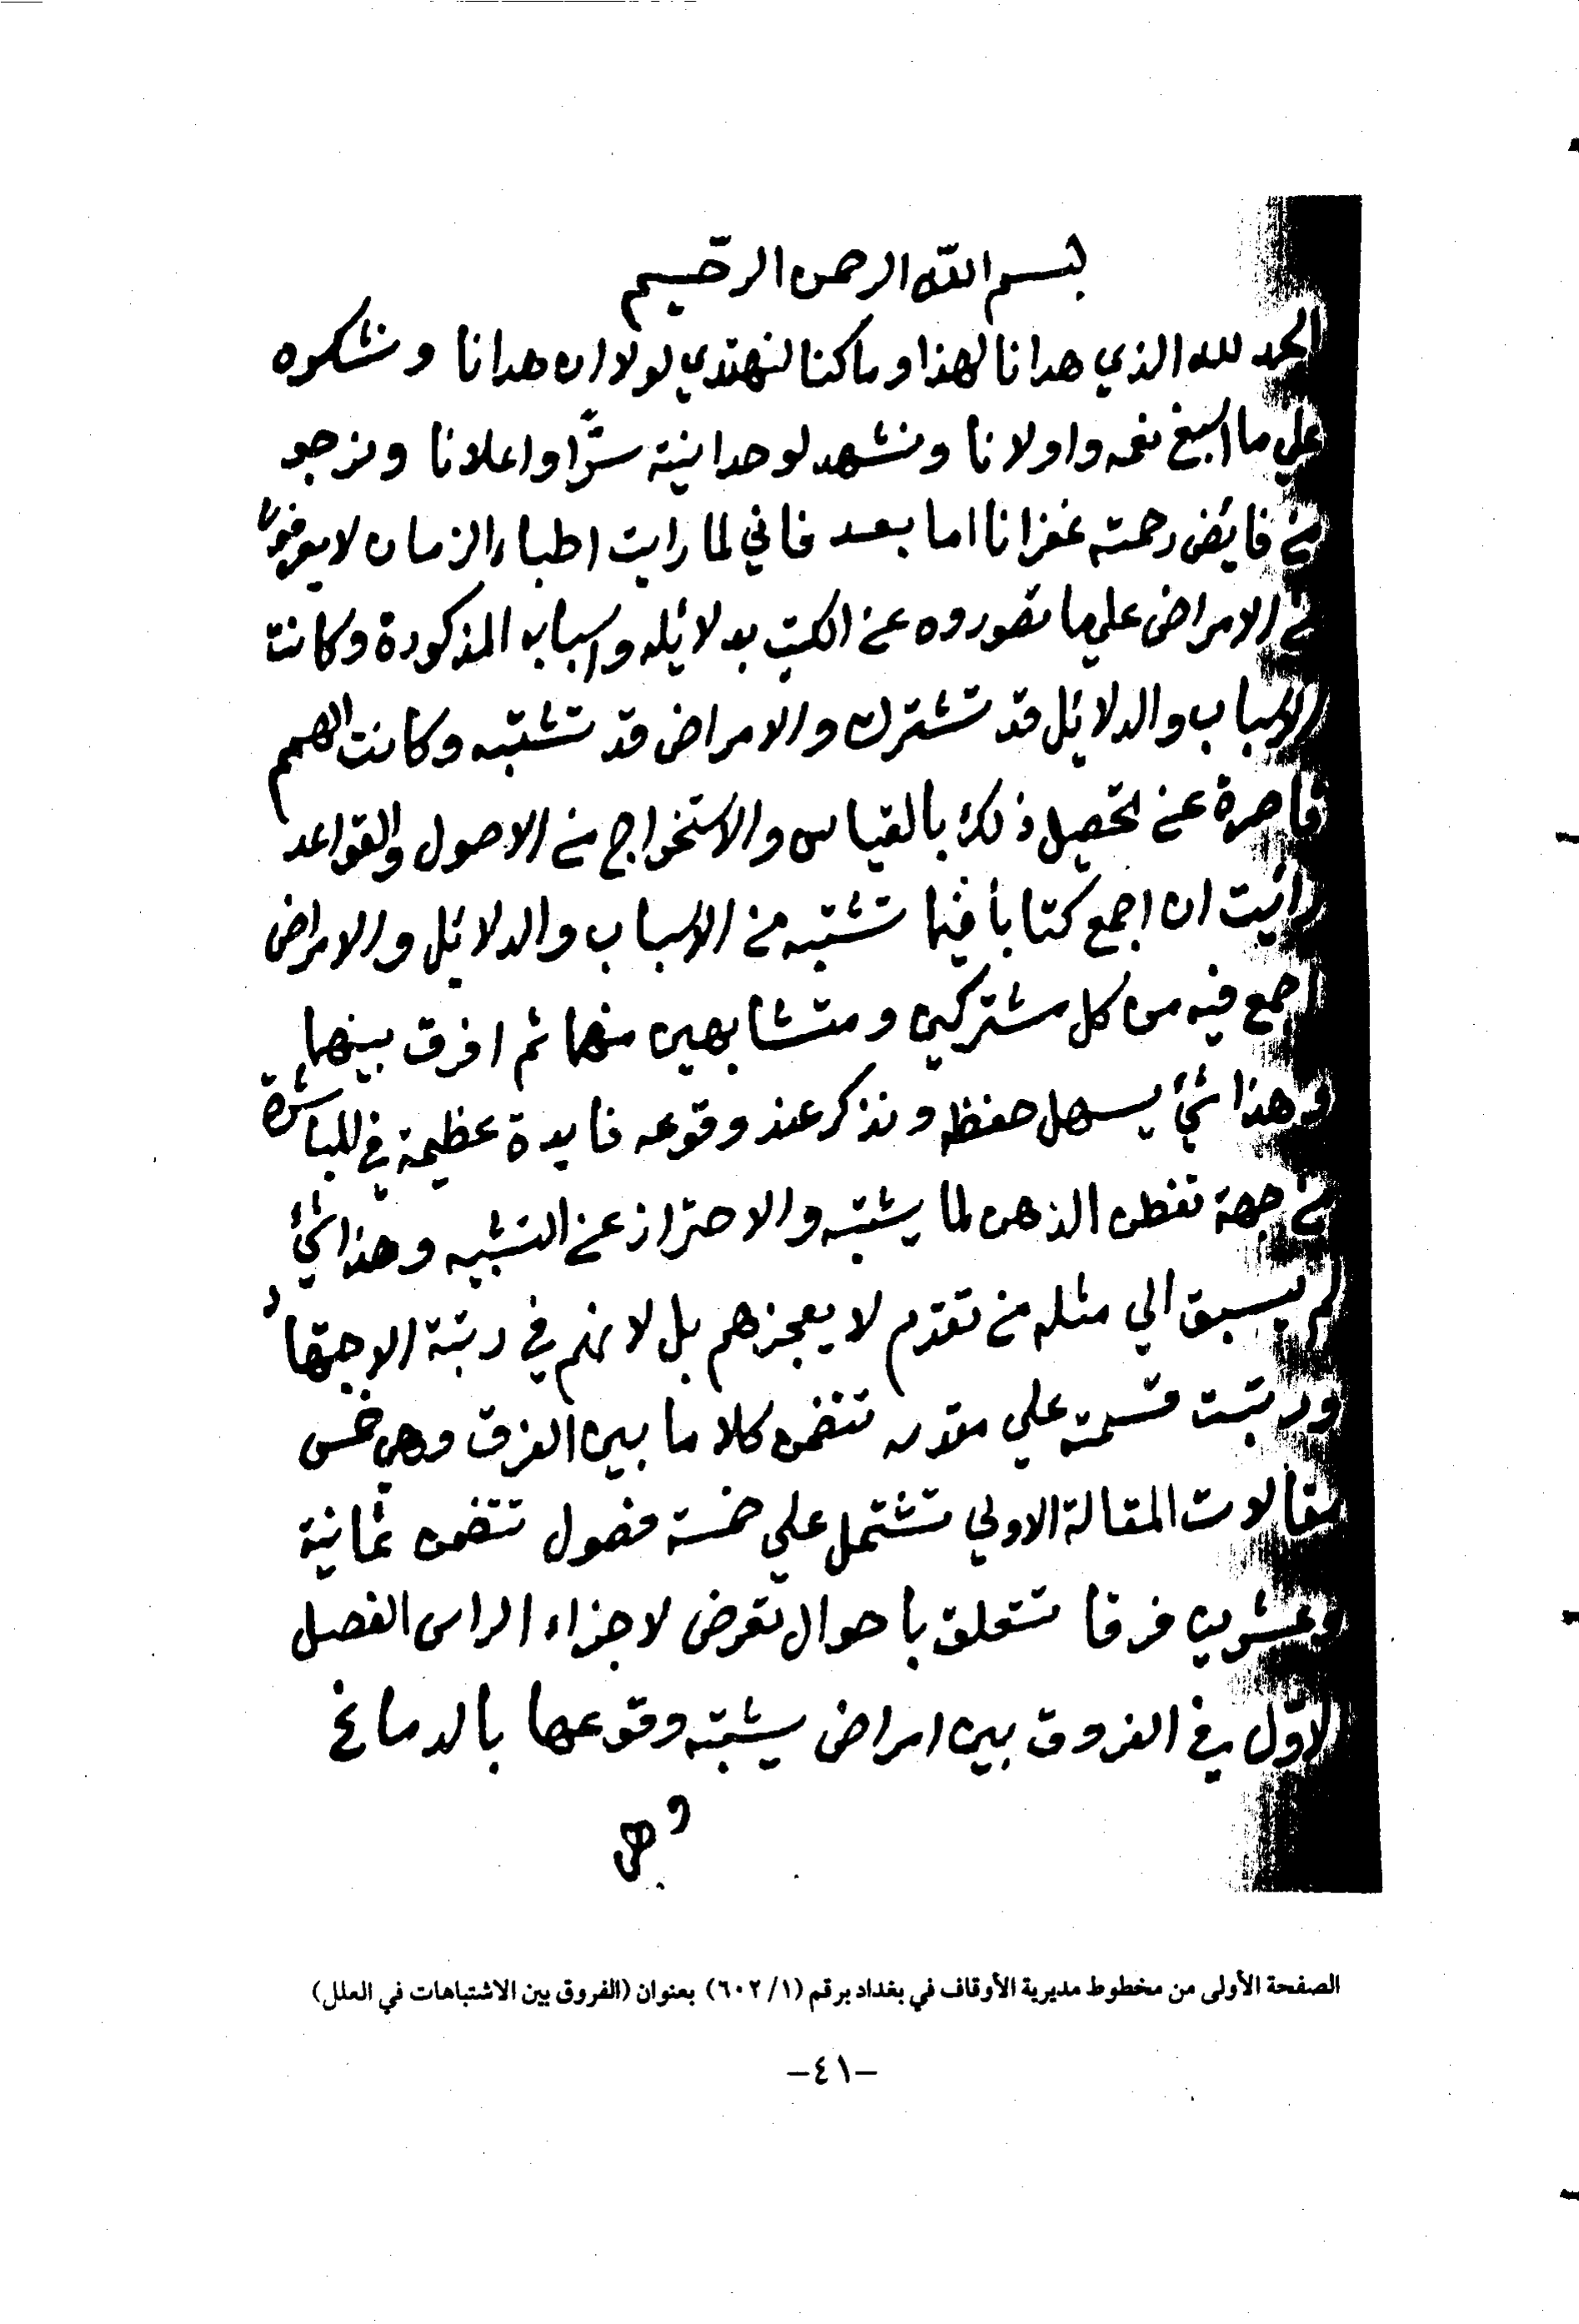 بسم الله الرحمن الرحيم
الحمد لله الذي هدانا لهذا وما كنا لنهتدي لولا ان هدانا ونشكره
علي ما اسبغ نعمه واولانا ونشهد لوحدانيته سرّا واعلانا ونرجو
من فايض رحمته غفرانا اما بعد فاني لما رايت اطباء الزمان لا يعرفون
من الامراض علي ما تصوروه عن الكتب بدلائله واسبابه المذكورة وكانت
الاسباب والدلائل قد تشترك والامراض قد تشتبه وكانت الهمم
قاصرة عن تحصيل ذلك بالقياس والاستخراج من الاصول والقواعد
رائيت ان اجمع كتابا فيما تشتبه من الاسباب والدلائل والامراض
اجمع فيه من كل مشتركين ومتشابهين منهما ثم افرق بينهما
وهذا شئ يسهل حفظه ونذكر عند وقوعه فايدة عظيمة في المباشرة
من جهة تفطن الذهن لما يشتبه والاحتراز عن التشبيه وهذا شئ
لم يسبق الي مثله من تقدم لا يعجزهم بل لانهم في رتبة الاجتهاد
ورتبت قسمته علي مقدمه تتضمن كلاما بين الفرق وهي خمس
مقالات المقالة الاولي تشتمل علي خمسة فصول تتضمن ثمانية
وعشرين فرقا تتعلق باحوال تعرض لاجزاء الراس الفصل
الاوّل في الفروق بين امراض يشتبه وقوعها بالدماغ
وهي
الصفحة الأولى من مخطوط مديرية الأوقاف في بغداد برقم (٦٠٢/١) بعنوان (الفروق بين الاشتباهات في العلل)
–٤١–